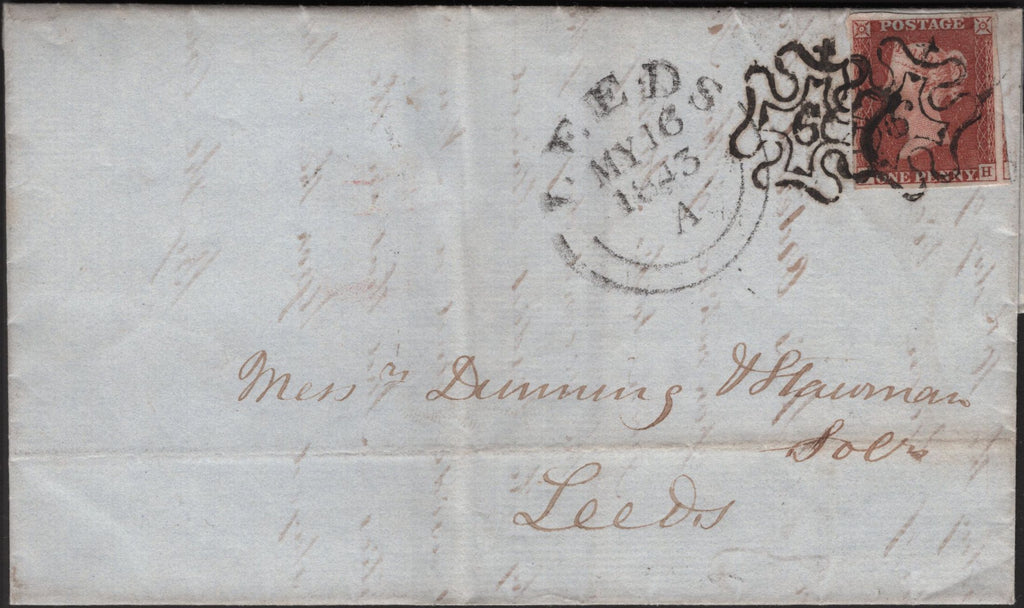 POSTAGE
ONE PENNY H
LEEDS
MY 16
1843
A
6
Mess rs Dunning & Stawman
Solrs
Leeds